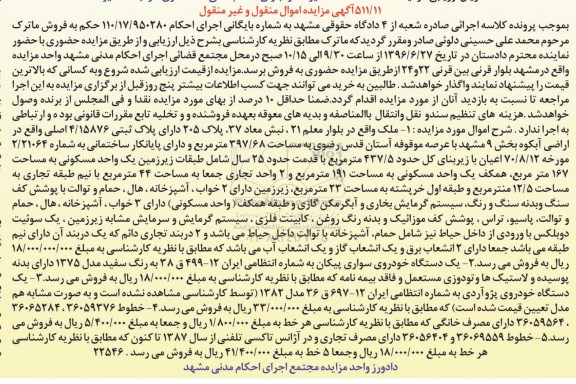 ۵۱۱/۱۱آگهی مزایده اموال منقول و غیر منقول
بموجب پرونده کلاسه اجرائی صادره شعبه از ۴ دادگاه حقوقی مشهد به شماره بایگانی اجرای احکام ۱۱۰/۱۷/۹۵۰۲۸۰ حکم به فروش ماترک
مرحوم محمد علی حسینی دلوئی صادر ومقرر گردید که ماترک مطابق نظریه کارشناسی بشرح ذیل ارزیابی و از طریق مزایده حضوری با حضور
نماینده محترم دادستان در تاریخ ۱۳۹۶/۶/۲۷ از ساعت ۹/۳۰ الی ۱۰/۱۵ صبح درمحل مجتمع قضائی اجرای احکام مدنی مشهد واحد مزایده
واقع درمشهد بلوار قرنی بین قرنی ۲۲و۲۴ ازطریق مزایده حضوری به فروش برسد.مزایده ازقیمت ارزیابی شده شروع وبه کسانی که بالاترین
قیمت را پیشنهاد نمایند واگذار خواهدشد . طالبین به خرید می توانند جهت کسب اطلاعات بیشتر پنج روزقبل از برگزاری مزایده به این اجرا
مراجعه تا نسبت به بازدید آنان از مورد مزایده اقدام گردد.ضمنا حداقل ۱۰ درصد از بهای مورد مزایده نقدا و فی المجلس از برنده وصول
خواهدشد .هزینه های تنظیم سندو نقل وانتقال باالمناصفه و بدیه های معوقه بعهده فروشنده و و تخلیه تابع مقررات قانونی بوده و ارتباطی
به اجرا ندارد . شرح اموال مورد مزایده : ۱- ملک واقع در بلوار معلم ۲۱ ، نبش معاد ۳۷، پلاک ۲۰۵ دارای پلاک ثبتی ۴/۱۵۸۷۶ اصلی واقع در
اراضی آبکوه بخش ۹ مشهد با عرصه موقوفه آستان قدس رضوی به مساحت ۳۹۷/۶۸ مترمربع و دارای پایانکار ساختمانی به شماره ۲/۲۱۰۶۴
مورخه ۷۰/۸/۱۲ اعیان با زیربنای کل حدود ۴۳۷/۵ مترمربع با قدمت حدود ۲۵ سال شامل طبقات زیرزمین یک واحد مسکونی به مساحت
۱۶۷ متر مربع، همکف یک واحد مسکونی به مساحت ۱۹۱ مترمربع و ۲ واحد تجاری جمعا به مساحت ۴۴ مترمربع با نیم طبقه تجاری به
مساحت ۱۲/۵ منترمربع و طبقه اول خرپشته به مساحت ۲۳ مترمربع، زیرزمین دارای ۲ خواب ، آشپزخانه ، هال ، حمام و توالت با پوشش کف
سنگ وبدنه سنگ و رنگ، سیستم گرمایش بخاری و آبگرمکن گازی و طبقه همکف ( واحد مسکونی) دارای ۳ خواب ، آشپزخانه ، هال ، حمام
و توالت، پاسیو، تراس ، پوشش کف موزائیک و بدنه رنگ روغن ، کابینت فلزی ، سیستم گرمایش و سرمایش مشابه زیرزمین ، یک سوئیت
دوبلکس با ورودی از داخل حیاط نیز شامل حمام، آشپزخانه با توالت داخل حیاط می باشد و ۲ دربند تجاری دائم که یک دربند آن دارای نیم
طبقه می باشد جمعا دارای ۲ انشعاب برق و یک انشعاب گاز و یک انشعاب آب می باشد که مطابق با نظریه کارشناسی به مبلغ ۱۸/۰۰۰/۰۰۰/۰۰۰
ریال به فروش می رسد ۲- یک دستگاه خودروی سواری پیکان به شماره انتظامی ایران ۱۲-۴۹۹ ق ۳۸ به رنگ سفید مدل ۱۳۷۵ دارای بدنه
پوسیده و لاستیک ها و تودوزی مستعمل و فاقد بیمه نامه که مطابق با نظریه کارشناسی به مبلغ ۱۸/۰۰۰/۰۰۰ ریال به فروش می رسد.۳- یک
دستگاه خودروی پژو آردی به شماره انتظامی ایران ۱۲-۶۹۷ ق ۳۶ مدل ۱۳۸۲ (توسط کارشناسی مشاهده نشده است و به صورت مشابه هم
مدل تعیین قیمت شده است) که مطابق با نظریه کارشناسی به مبلغ ۳۳/۰۰۰/۰۰۰ ریال به فروش می رسد.۴- خطوط ۳۶۰۵۹۳۷۶ ، ۳۶۰۶۵۲۸۴
۳۶۰۵۹۵۶۴ ، دارای مصرف خانگی که مطابق با نظریه کارشناسی هر خط به مبلغ ۱/۸۰۰/۰۰۰ ریال و جمعا به مبلغ ۵/۴۰۰/۰۰۰ ریال به فروش می
رسد.۵- خطوط ۳۶۰۶۹۵۵۹ و ۳۶۰۵۶۴۰۴ دارای مصرف تجاری و در آژانس تاکسی تلفنی از سال ۱۳۸۷ تا کنون که مطابق با نظریه کارشناسی
هر خط به مبلغ ۱۸/۰۰۰/۰۰۰ ریال وجمعا ۵ خط به مبلغ ۴۱/۴۰۰/۰۰۰ ریال به فروش می رسد . ۲۲۵۴۶
دادورز واحد مزایده مجتمع اجرای احکام مدنی مشهد